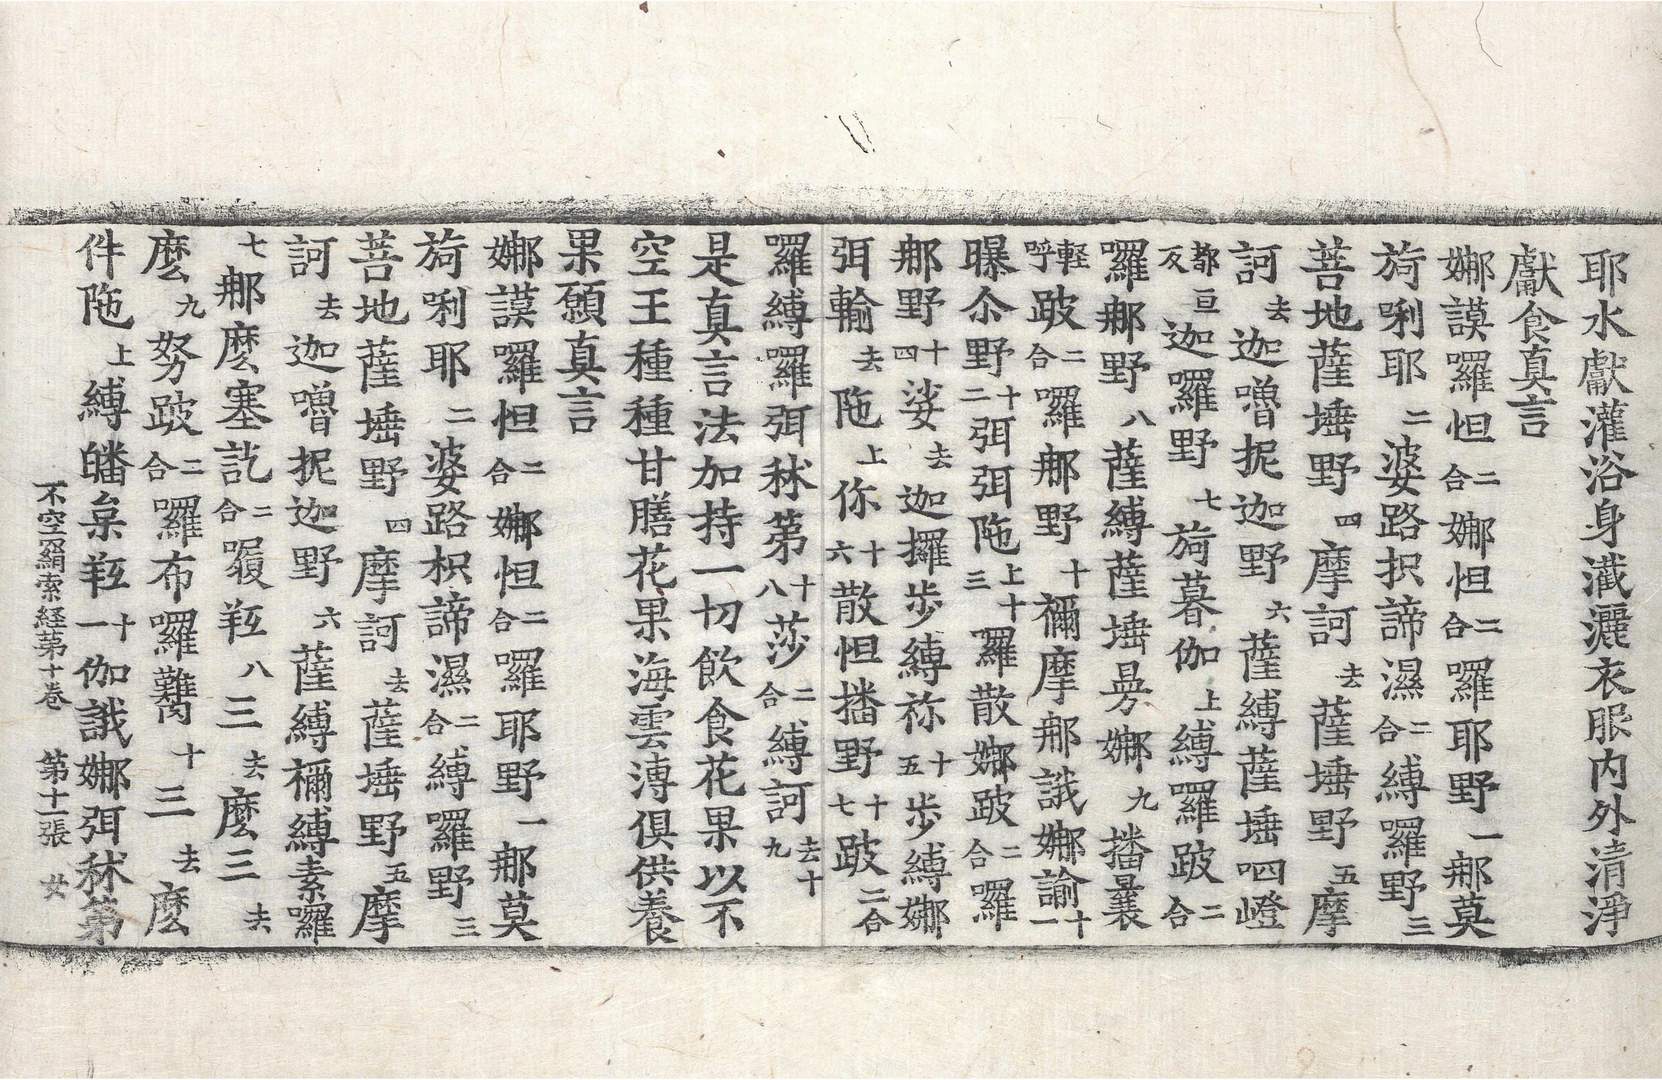 耶水獻灌浴身濺灑衣服内外清淨
獻食真言
娜謨囉怛二合娜怛二合囉耶野一那莫
旖唎耶二婆路枳諦濕二合縛囉野三
菩地薩埵野四摩訶去薩埵野五摩
訶去迦嚕抳迦野六薩縛薩埵呬嶝
都亘反迦囉野七旖暮伽上縛囉跛二合
囉那野八薩縛薩埵曩娜九播曩
輕呼跛二合囉那野十禰摩那誐娜諭十一
曝尒野十二弭弭陁上十三囉散娜跛二合囉
那野十四娑去迦攞步縛祢十五步縛娜
弭輸去陁上你十六散怛播野十七跛二合
囉縛囉弭秫第十八莎二合縛訶去十九
是真言法加持一切飲食花果以不
空王種種甘膳花果海雲溥俱供養
果願真言
娜謨囉怛二合娜怛二合囉耶野一那莫
旖唎耶二婆路枳諦濕二合縛囉野三
菩地薩埵野四摩訶去薩埵野五摩
訶去迦嚕抳迦野六薩縛禰縛素囉
七那麼塞訖二合㗚羝八三去麼三去
麼九努跛二合囉布囉難十三去麼
件陁上縛皤枲羝十一伽誐娜弭秫第
不空羂索経第十卷　第十一張　廿